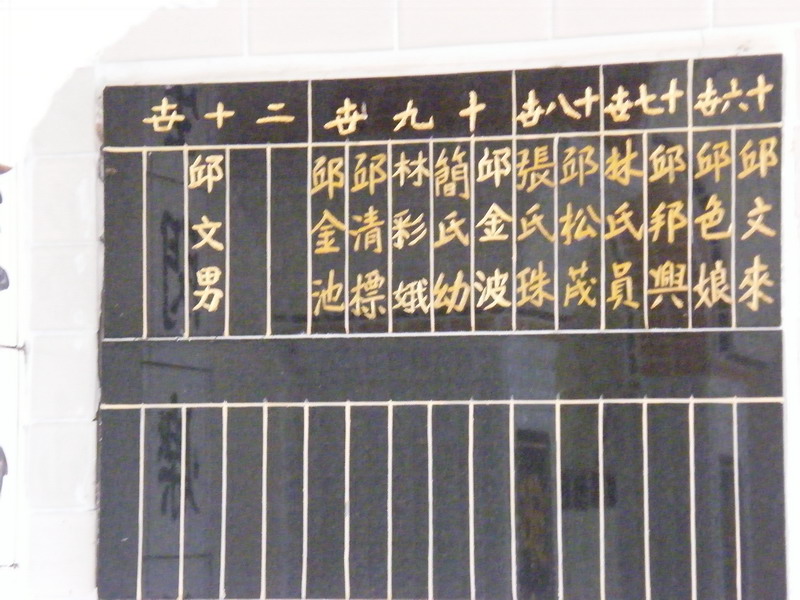 十六世
邱文來
邱色娘
十七世
邱邦興
林氏員
十八世
邱松茂
張氏珠
十九世
邱金波
簡氏幼
林彩娥
邱清標
邱金池
二十世
邱文男